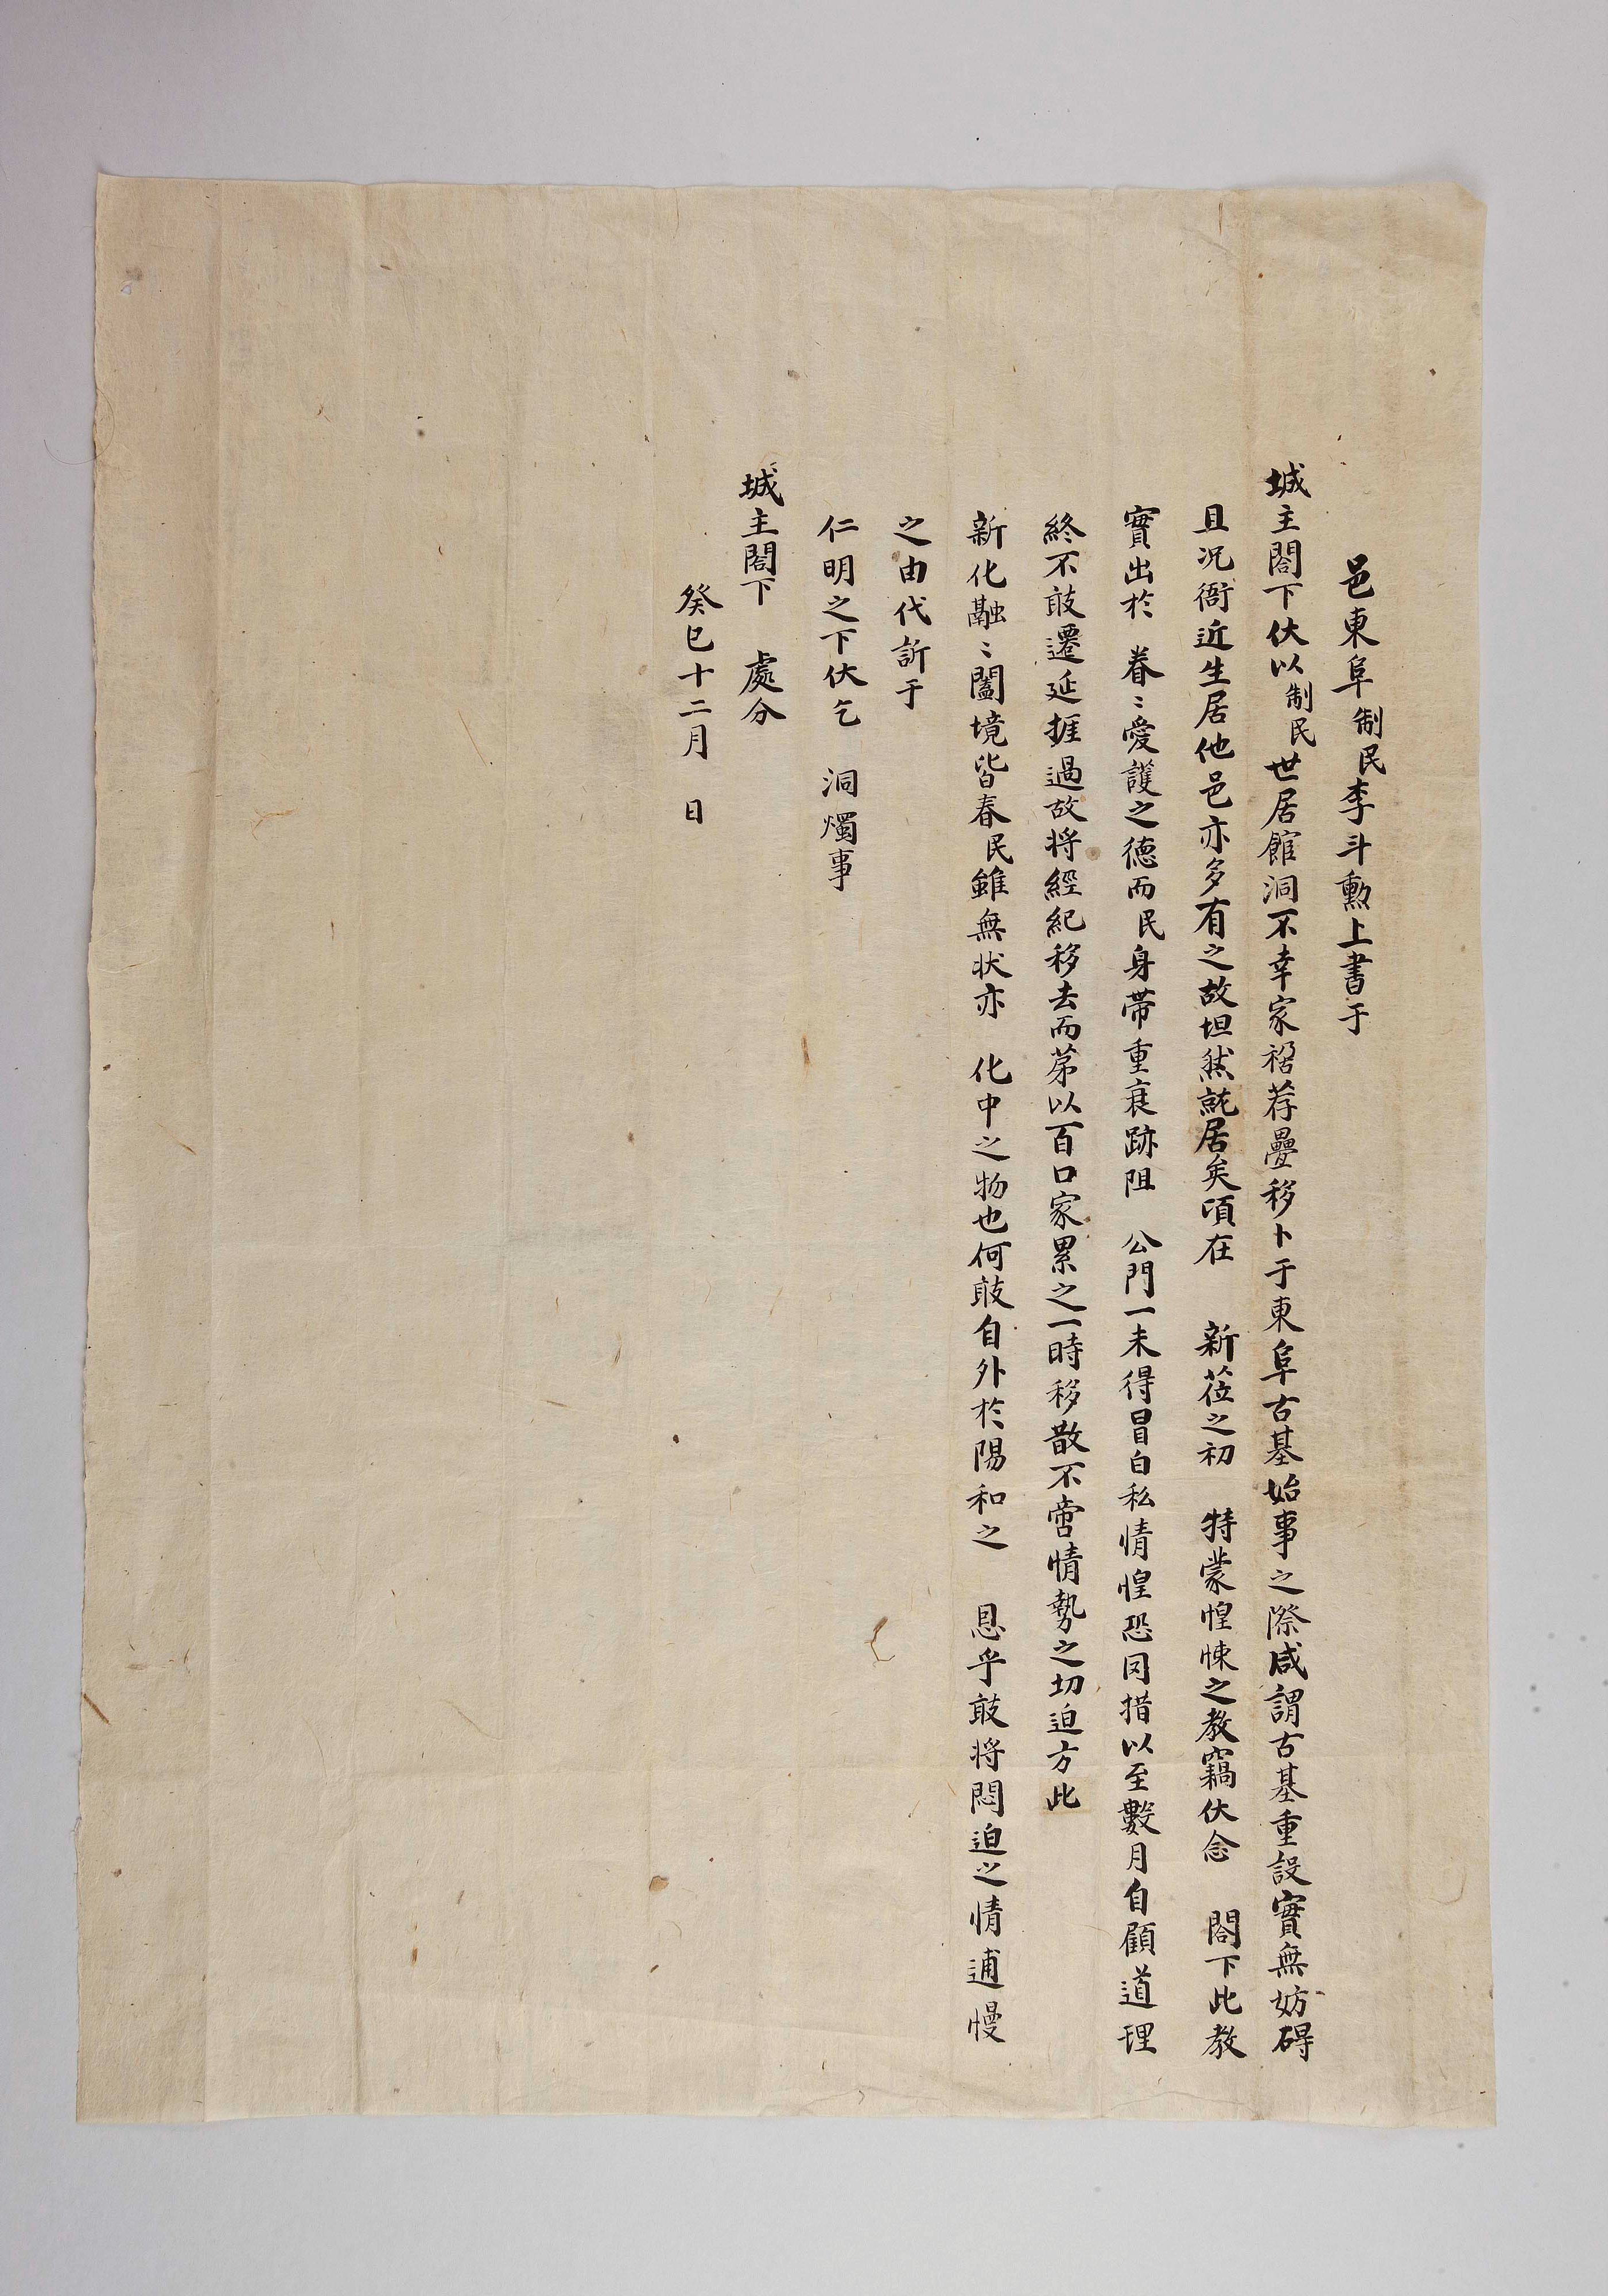 邑東阜制民李斗勳上書于
城主閤下伏以制民世居館洞不幸家禍荐疊移卜于東阜古基始事之際咸謂古基重設實無妨碍
且况衙近生居他邑亦多有之故坦然就居矣頃在 新莅之初 特蒙惶悚之教竊伏念 閤下此教
實出於 眷〻愛護之德而民身帶重衰跡阻 公門一未得冒白私情惶恐罔措以至數月自顧道理
終不敢遷延捱過故將經紀移去而苐以百口家累之一時移散不啻情勢之切迫方此
新化融〻闔境皆春民雖無状亦 化中之物也何敢自外於陽和之 恩乎敢将悶迫之情逋慢
之由代訴于
仁明之下伏乞 洞燭事
城主閤下 處分
癸巳十二月 日